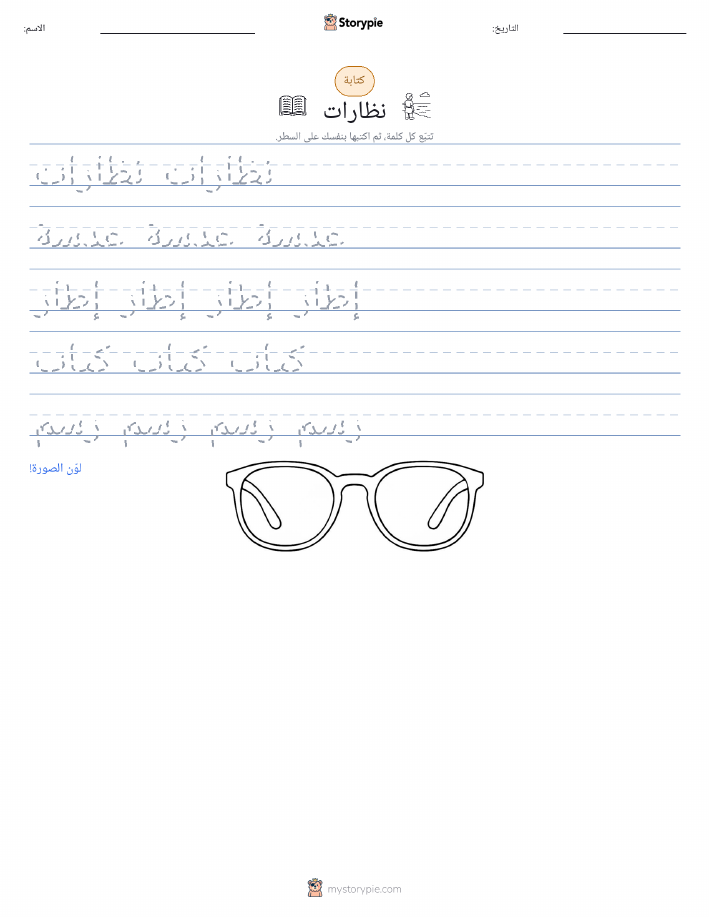 Storypie
الاسم:
التاريخ:
كتابة
نظارات
تتبّع كل كلمة، ثم اكتبها بنفسك على السطر.
نظارات نظارات
عدسة عدسة عدسة
إطار إطار إطار إطار
كتاب كتاب كتاب
رسم رسم رسم رسم
لوّن الصورة!
mystorypie.com